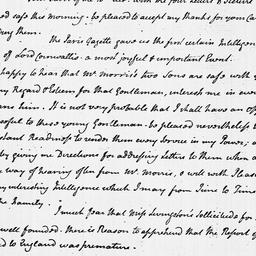 with the four Letters & Papers
and safe this morning - be pleased to accept my thanks for your Car
ding them.
The Paris Gazette gave us the first certain Intelligence
of Lord Cornwallis. a most joyful & important Event.
happy to hear that Mr. Morris's two Sons are safe with y
my Regard & Esteem for that Gentleman, interest me in ever
cerns him. It is not very probable that I shall have an Op
useful to these young Gentlemen - be pleased nevertheless to
stant Readiness to render them every Service in my Power; a
by giving me Directions for addressing Letters to them when a
e way of hearing often from Mr. Morris, & will with Pleas
ny interesting Intelligence which I may from Time to Time
the Family.
I much fear that Miss Livingston's Sollicitude for
well founded. there is Reason to apprehend that the Report of
to England was premature.